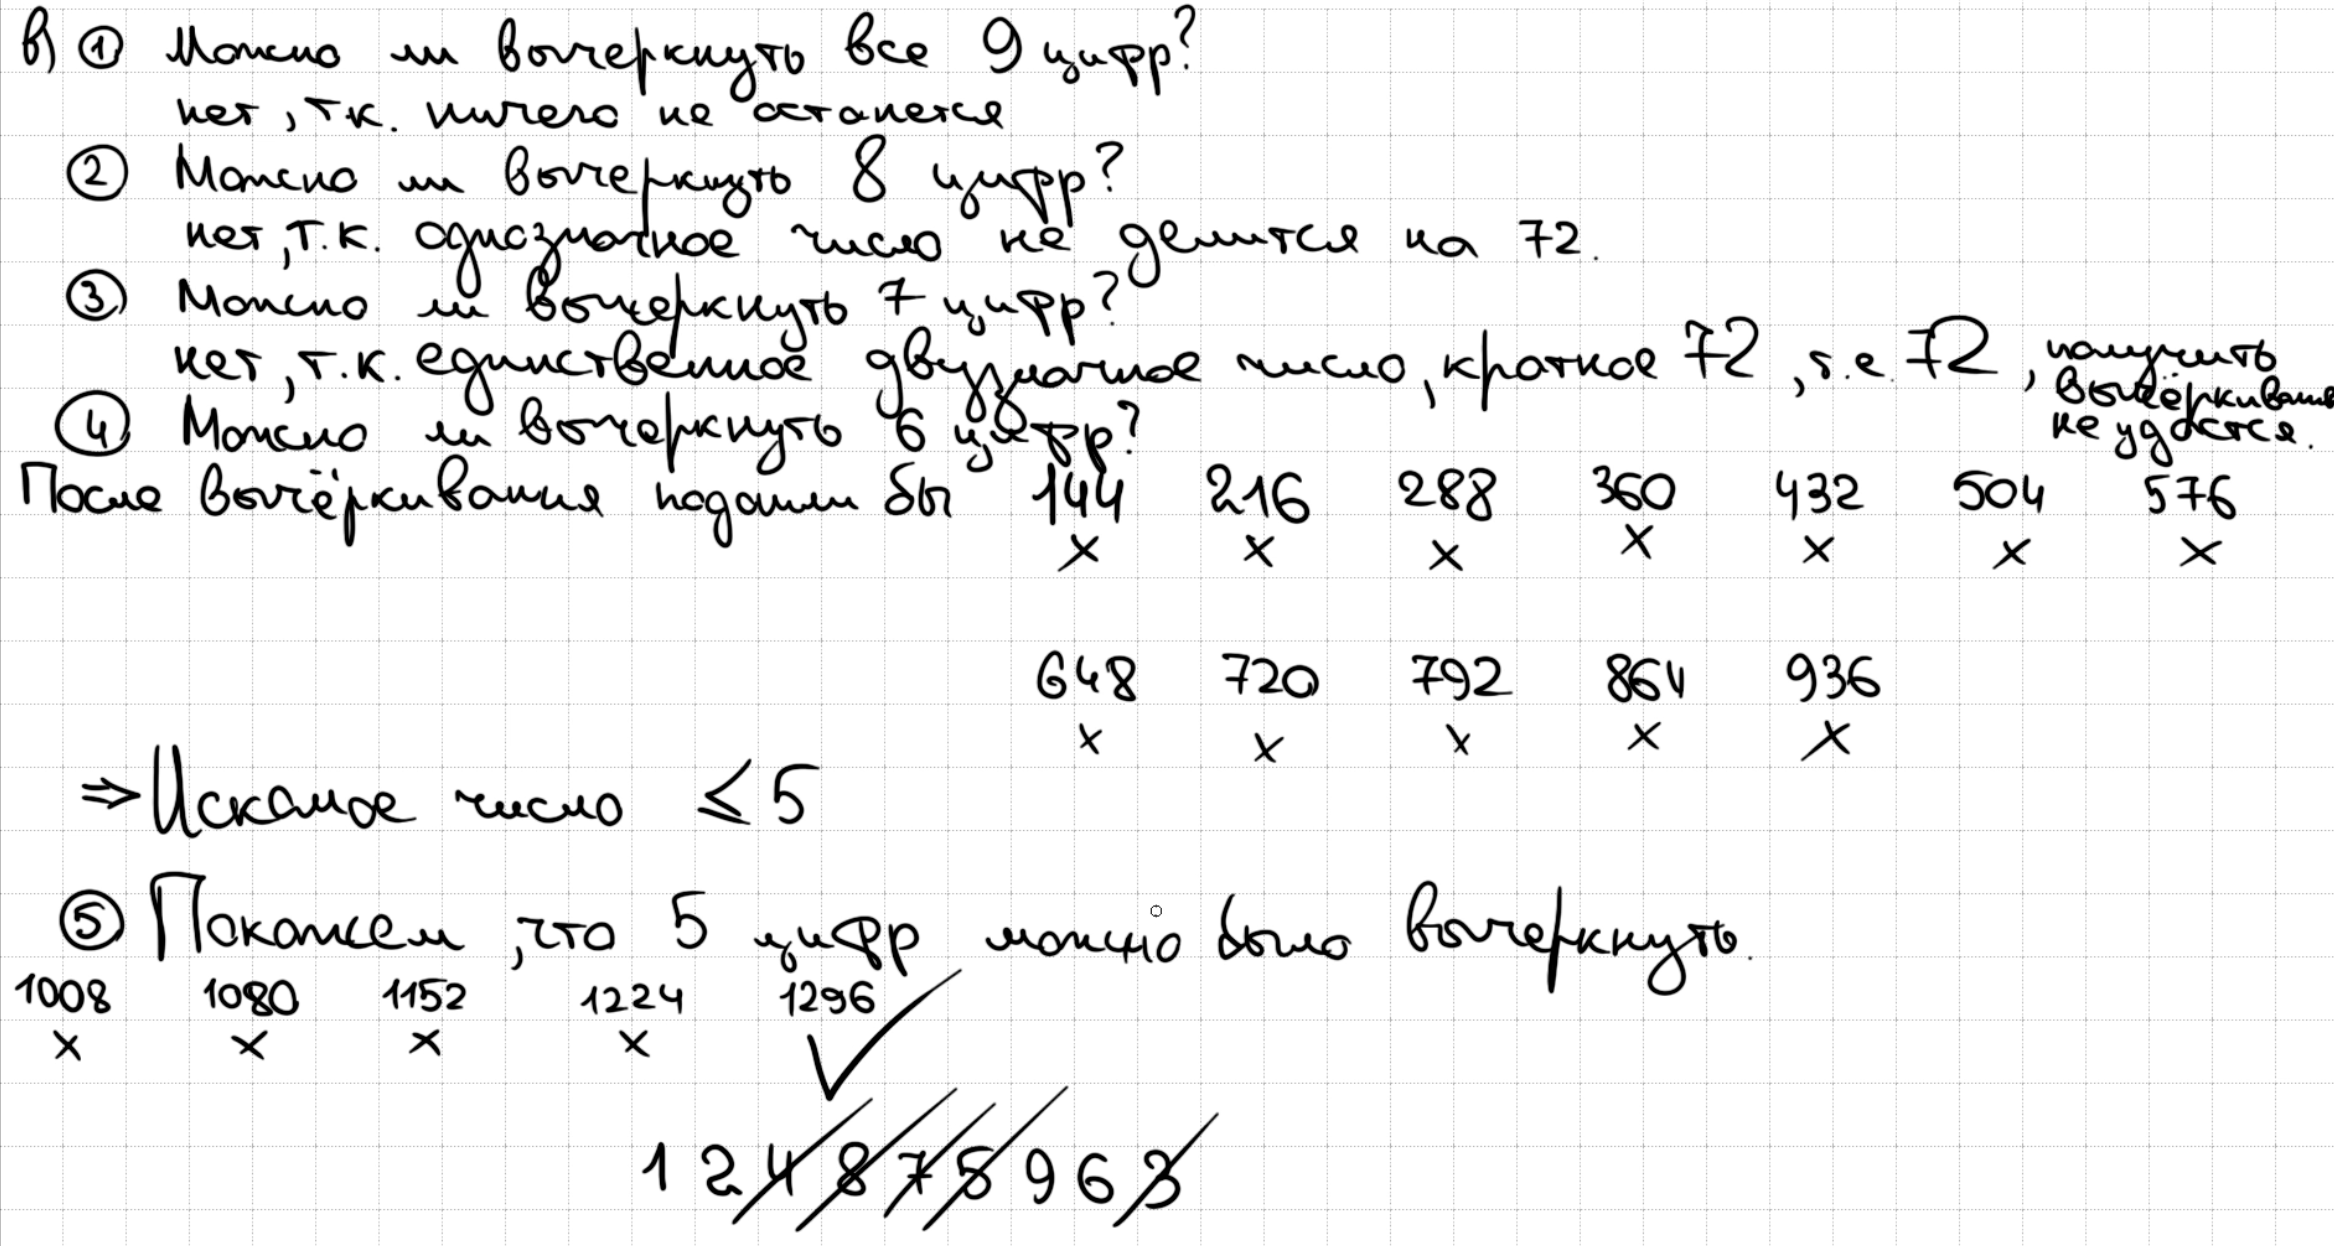 в) ① Можно ли вычеркнуть все 9 цифр?
нет, т.к. ничего не останется
② Можно ли вычеркнуть 8 цифр?
нет, т.к. однозначное число не делится на 72.
③ Можно ли вычеркнуть 7 цифр?
нет, т.к. единственное двузначное число, кратное 72, т.е. 72, получить вычёркиванием не удастся.
④ Можно ли вычеркнуть 6 цифр?
После вычёркивания подошли бы 144 216 288 360 432 504 576
x x x x x x x
648 720 792 864 936
x x x x x
⇒ Искомое число ≤ 5
⑤ Покажем, что 5 цифр можно было вычеркнуть.
1008 1080 1152 1224 1296
x x x x ✓
1 2 4 8 7 5 9 6 3